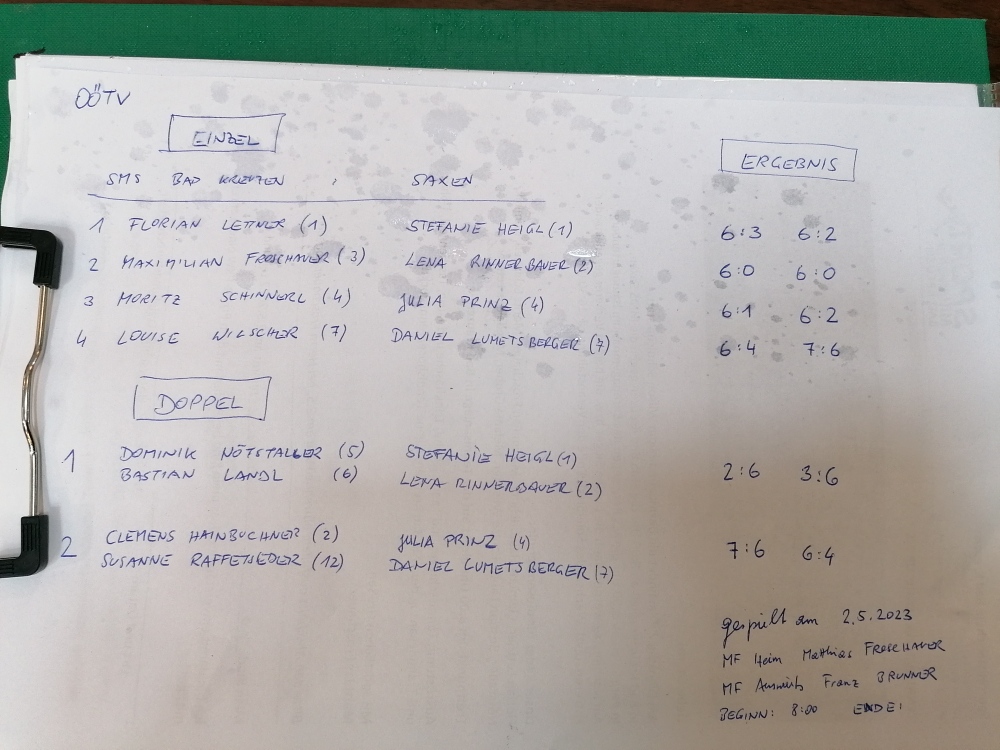 OÖTV
EINZEL
ERGEBNIS
SMS BAD KREUZEN : SAXEN
1 FLORIAN LETTNER (1) STEFANIE HEIGL (1) 6:3 6:2
2 MAXIMILIAN FROSCHAUER (3) LENA RINNERBAUER (2) 6:0 6:0
3 MORITZ SCHINNERL (4) JULIA PRINZ (4) 6:1 6:2
4 LOUISE WILSCHER (7) DANIEL LUMETSBERGER (7) 6:4 7:6
DOPPEL
1 DOMINIK NÖTSTALLER (5) STEFANIE HEIGL (1) 2:6 3:6
BASTIAN LANDL (6) LENA RINNERBAUER (2)
2 CLEMENS HAINBUCHNER (2) JULIA PRINZ (4) 7:6 6:4
SUSANNE RAFFETSEDER (12) DANIEL LUMETSBERGER (7)
gespielt am 2.5.2023
MF Heim Matthias FROSCHAUER
MF Auswärts Franz BRUNNER
BEGINN: 8:00 ENDE: